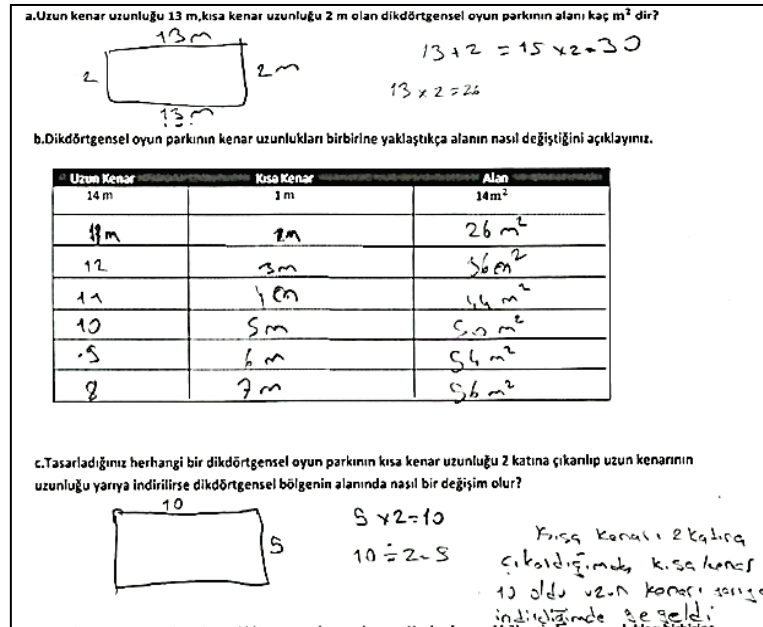 a.Uzun kenar uzunluğu 13 m,kısa kenar uzunluğu 2 m olan dikdörtgensel oyun parkının alanı kaç m² dir?
13 m
13 + 2 = 15 x 2 = 30
2
2 m
13 x 2 = 26
13 m
b.Dikdörtgensel oyun parkının kenar uzunlukları birbirine yaklaştıkça alanın nasıl değiştiğini açıklayınız.
Uzun Kenar Kısa Kenar Alan
14 m 1 m 14m²
13 m 2m 26 m²
12 3m 36 m²
11 4 m 44 m²
10 5m 50 m²
9 6 m 54 m²
8 7 m 56 m²
c.Tasarladığınız herhangi bir dikdörtgensel oyun parkının kısa kenar uzunluğu 2 katına çıkarılıp uzun kenarının
uzunluğu yarıya indirilirse dikdörtgensel bölgenin alanında nasıl bir değişim olur?
10
5
5 x 2 = 10
10 ÷ 2 = 5
Kısa kenarı 2 katına
çıkardığımda kısa kenar
10 oldu uzun kenarı yarıya
indirdiğimde 5e geldi